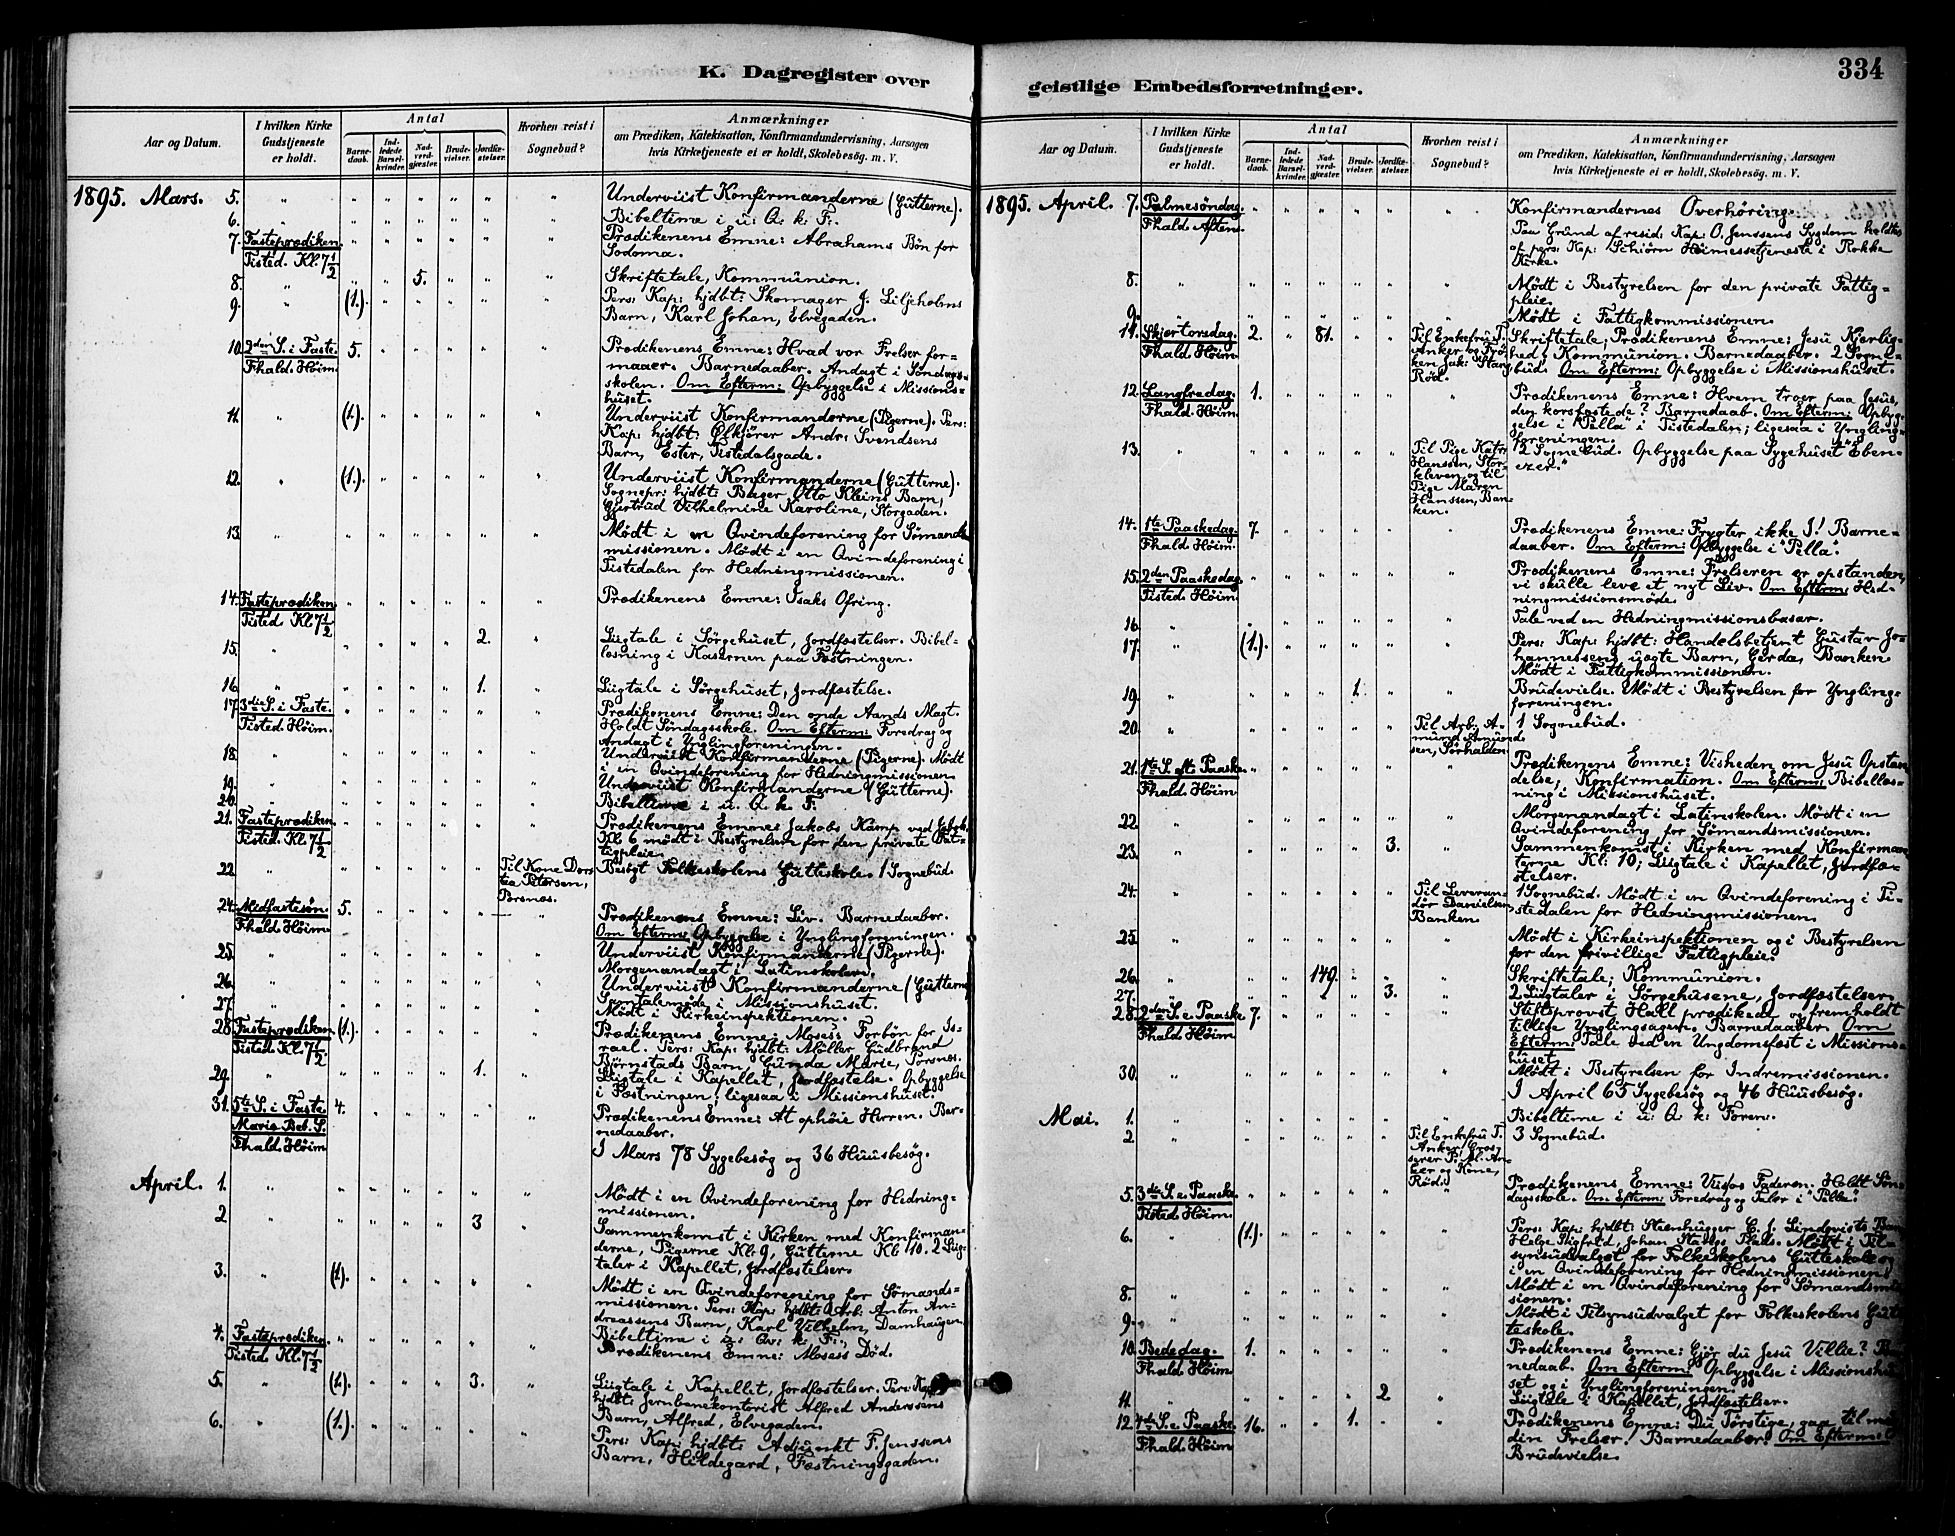 K. Dagregister over
Aar og Datum.
I hvilken Kirke
Gudstjeneste
er holdt.
Antal
Barne-
daab.
Ind-
ledede
Barsel-
kvinder.
Nad-
verd-
gjæster.
Brude-
vielser.
Jordfæ-
stelser.
Hvorhen reist i
Sognebud?
Anmærkninger
om Prædiken, Katekisation, Konfirmandundervisning, Aarsagen
hvis Kirketjeneste ei er holdt, Skolebesøg. m. V.
1895. Mars. 5. Underviist Konfirmanderne (Gutterne).
6. Bibeltime i u. Q. k. F.
7. Fasteprædiken. Prædikenens Emne: Abrahams Bøn for
Tisted. Kl. 7 1/2 Sodoma.
8. 5. Skriftetale, Kommunion.
9. (1.) Pers: Kap: hjdbt: Skomager J. Liljeholms
Barn, Karl Johan, Elvegaden.
10. 2den S. i Faste. 5. Prædikenens Emne: Hvad vor Frelser for-
Fhald. Høim. maaer. Barnedaaber. Andagt i Søndags-
skolen. Om Efterm: Opbyggelse i Missions-
huset.
11. (1.) Underviist Konfirmanderne (Pigerne). Pers:
Kap: hjdbt: Ølkjører Andr: Svendsens
Barn, Ester, Tistedalsgade.
12. (1.) Underviist Konfirmanderne (Gutterne).
Sognepr: hjdbt: Bager Otto Kleins Barn,
Gjertrud Vilhelmine Karoline, Storgaden.
13. Mødt i en Qvindeforening for Sømands-
missionen. Mødt i en Qvindeforening i
Tistedalen for Hedningmissionen.
14. Fasteprædiken Prædikenens Emne: Isaks Ofring.
Tisted. Kl. 7 1/2
15. 2. Liigtale i Sørgehuset, Jordfæstelser. Bibel-
læsning i Kasernen paa Fæstningen.
16. 1. Liigtale i Sørgehuset, Jordfæstelse.
17. 3die S. i Faste. Prædikenens Emne: Den onde Aands Magt.
Tisted. Høim. Holdt Søndagsskole. Om Efterm: Foredrag og
Andagt i Ynglingforeningen.
18. Underviist Konfirmanderne (Pigerne). Mødt
i en Qvindeforening for Hedningmissionen.
19. Underviist Konfirmanderne (Gutterne).
20. Bibeltime i u. Q. k. F.
21. Fasteprædiken. Prædikenens Emne: Jakobs Kamp ved
Tisted. Kl. 7 1/2 Kl. 6 mødt i Bestyrelsen for den private Fat-
tigpleie.
22. Til Kone Doro- Besøgt Folkeskolens Gutteskole. 1 Sognebud.
tea Petersen,
Porsnæs.
24. Midfastesøn. 5. Prædikenens Emne: Liv. Barnedaaber.
Fhald. Høim. Om Efterm: Opbyggelse i Ynglingforeningen.
25. Underviist Konfirmanderne (Pigerne).
Morgenandagt i Latinskolen.
26. Underviist Konfirmanderne (Gutterne)
27. Samtalemøde i Missionshuset.
Mødt i Kirkeinspektionen.
28. Fasteprædiken. (1.) Prædikenens Emne: Moses's Forbøn for Is-
Tisted. Kl. 7 1/2. rael. Pers: Kap: hjdbt: Møller Gudbrand
Bjørnstads Barn, Gunda Marie, Porsnæs.
29. 1. Liigtale i Kapellet, Jordfæstelse. Opbyggelse
i Fæstningen; ligesaa i Missionshuset.
31. 5te S. i Faste. 4. Prædikenens Emne: At ophøie Herren. Bar-
Mariæ Beb. S. nedaaber.
Fhald. Høim. I Mars 78 Sygebesøg og 36 Huusbesøg.
April. 1. Mødt i en Qvindeforening for Hedning-
missionen.
2. 3 Sammenkomst i Kirken med Konfirman-
derne, Pigerne Kl. 9, Gutterne Kl. 10. 2 Liig-
taler i Kapellet, Jordfæstelser.
3. (1.) Mødt i en Qvindeforening for Sømands-
missionen. Pers: Kap: hjdbt: Arb: Anton An-
dreassens Barn, Karl Vilhelm, Damhaugen.
4. Fasteprædiken. Bibeltime i u. Qv: k. F.
Tisted. Kl. 7 1/2 Prædikenens Emne: Moses's Død.
5. (1.) 3. Liigtale i Kapellet, Jordfæstelser. Pers: Kap:
hjdbt: Jernbanekontorist Alfred Anderssens
Barn, Alfred, Elvegaden.
6. (1.) Pers: Kap: hjdbt: Adjunkt F. Jenssens
Barn, Hildegard, Fæstningsgaden.
geistlige Embedsforretninger.
334
Aar og Datum.
I hvilken Kirke
Gudstjeneste
er holdt.
Antal
Barne-
daab.
Ind-
ledede
Barsel-
kvinder.
Nad-
verd-
gjæster.
Brude-
vielser.
Jordfæ-
stelser.
Hvorhen reist i
Sognebud?
Anmærkninger
om Prædiken, Katekisation, Konfirmandundervisning, Aarsagen
hvis Kirketjeneste ei er holdt, Skolebesøg. m. V.
1895. April. 7. Palmesøndag. Konfirmandernes Overhøring.
Fhald. Aften. Paa Grund af resid: Kap: O. Jenssens Sygdom holdtes
af pers: Kap: Schiørn Høimessetjeneste i Rokke
Kirke.
8. Mødt i Bestyrelsen for den private Fattig-
pleie.
9. Mødt i Fattigkommissionen.
11. Skjærtorsdag. 2. 81. Til Enkefru T. Skriftetale; Prædikenens Emne: Jesu Kjærlig-
Fhald. Høim. Anker og Frø- hed; Kommunion. Barnedaaber. 2 Sogne-
ken Jak: Stang bud. Om Efterm: Opbyggelse i Missionshuset.
Rød.
12. Langfredag. 1. Prædikenens Emne: Hvem troer paa Jesus,
Fhald. Høim. den korsfæstede? Barnedaab. Om Efterm: Opbyg-
gelse i "Pella" i Tistedalen; ligesaa i Yngling-
foreningen.
13. Til Pige Katr: 2 Sognebud. Opbyggelse paa Sygehuset "Eben-
Hanssen, Stor- ezer."
kleven, og til
Pige Maren
Hanssen, Ban-
ken.
14. 1te Paaskedag. 7. Prædikenens Emne: Frygter ikke I! Barne-
Fhald. Høim. daaber. Om Efterm: Opbyggelse i "Pella".
15. 2den Paaskedag. Prædikenens Emne: Frelseren er opstanden,
Tisted. Høim. vi skulle leve et nyt Liv. Om Efterm: Hed-
ningmissionsmøde.
16. Tale ved en Hedningmissionsbasar.
17. (1.) Pers: Kap: hjdbt: Handelsbetjent Gustav Jo-
hannessens uægte Barn, Gerda, Banken.
Mødt i Fattigkommissionen.
19. 1. Brudevielse. Mødt i Bestyrelsen for Yngling-
foreningen.
20. Til Arb: A- 1 Sognebud.
mund Amund-
sen, Sørhalden.
21. 1te S. eft. Paaske Prædikenens Emne: Visheden om Jesu Opstan-
Fhald. Høim. delse, Konfirmation. Om Efterm: Bibellæs-
ning i Missionshuset.
22. Morgenandagt i Latinskolen. Mødt i en
Qvindeforening for Sømandsmissionen.
23. 3. Sammenkomst i Kirken med Konfirman-
terne Kl: 10; Liigtale i Kapellet, Jordfæ-
stelser.
24. Til Leveran- 1 Sognebud. Mødt i en Qvindeforening i Ti-
dør Danielsen stedalen for Hedningmissionen.
Banken.
25. Mødt i Kirkeinspektionen og i Bestyrelsen
for den frivillige Fattigpleie.
26. 149. Skriftetale; Kommunion.
27. 3. 2 Liigtaler i Sørgehusene, Jordfæstelser.
28. 2den S. e. Paaske 7. Stiftsprovst Hall prædikede og fremholdt
Fhald. Høim. tillige Ynglingsagen. Barnedaaber. Om
Efterm: Tale ved en Ungdomsfest i Missions-
huset.
30. Mødt i Bestyrelsen for Indremissionen.
I April 65 Sygebesøg og 46 Huusbesøg.
Mai. 1. Bibeltime i u: Q k: Foren.
2. Til Enkefru T. 3 Sognebud.
Anker, Gros-
serer P. M. An-
ker og Kone,
Rød.
5. 3die S. e. Paaske. Prædikenens Emne: Viis os Faderen. Holdt Søn-
Tisted. Høim. dagsskole. Om Efterm: Foredrag og Taler i "Pella."
6. (1.) Pers: Kap: hjdbt: Stenhugger C. J. Lindqvists Barn
Helge Sigfrid, Johan Stangs Plads. Mødt i Til-
synsudvalget for Folkeskolens Gutteskole og
i en Qvindeforening for Hedningmissionen.
8. Mødt i en Qvindeforening for Sømandsmis-
sionen.
9. Mødt i Tilsynsudvalget for Folkeskolens Gut-
teskole.
10. Bededag. 1. Prædikenens Emne: Gjør du Jesu Villie? Bar-
Fhald. Høim. nedaab. Om Efterm: Opbyggelse i Missionshu-
set og i Ynglingforeningen.
11. 2. Liigtale i Kapellet, Jordfæstelser.
12. 4de S. e. Paaske. 16. 1. Prædikenens Emne: Du Tørstige, gaa til
Fhald. Høim. din Frelser! Barnedaaber. Om Efterm:
Brudevielse.